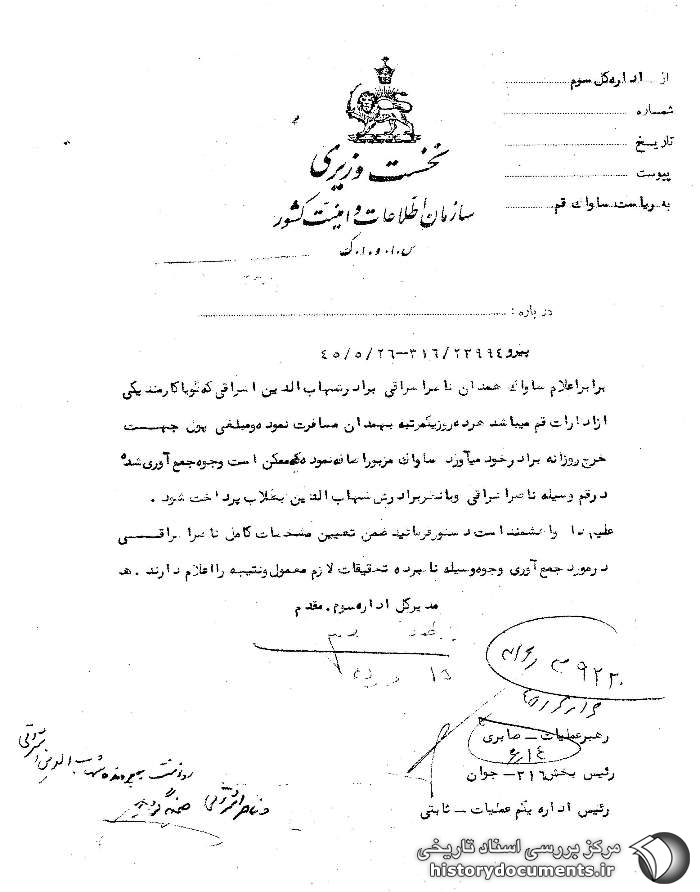 از اداره کل سوم
شماره
تاریخ
پیوست
به ریاست ساواک قم
نخست وزیری
سازمان اطلاعات و امنیت کشور
س.ا.و.ا.ک
درباره :
پیرو ۳۱۶/۲۳۹۹۴-۴۵/۵/۲۶
برابر اعلام ساواک همدان ناصر اشراقی برادر شهاب الدین اشراقی که گویا کارمند یکی
از ادارات قم میباشد هر ده روز یکمرتبه بهمدان مسافرت نموده و مبلغی پول جهت
خرج روزانه برادر خود میآورد ساواک مزبور اضافه نموده که ممکن است وجوه جمع آوری شده
در قم وسیله ناصر اشراقی و یا دیگر برادرش شهاب الدین بطلاب پرداخت شود .
علیهذا خواهشمند است دستور فرمائید ضمن تعیین مشخصات کامل ناصر اشراقی
در مورد جمع آوری وجوه وسیله نامبرده تحقیقات لازم معمول و نتیجه را اعلام دارند . هـ
مدیر کل اداره سوم . مقدم
رهبر عملیات - صابری
۶/۱۴
رئیس بخش ۳۱۶ - جوان
رئیس اداره یکم عملیات - ثابتی
رونوشت به پرونده شهاب الدین اشراقی
و ناصر اشراقی ضمیمه گردید
مرکز بررسی اسناد تاریخی
historydocuments.ir